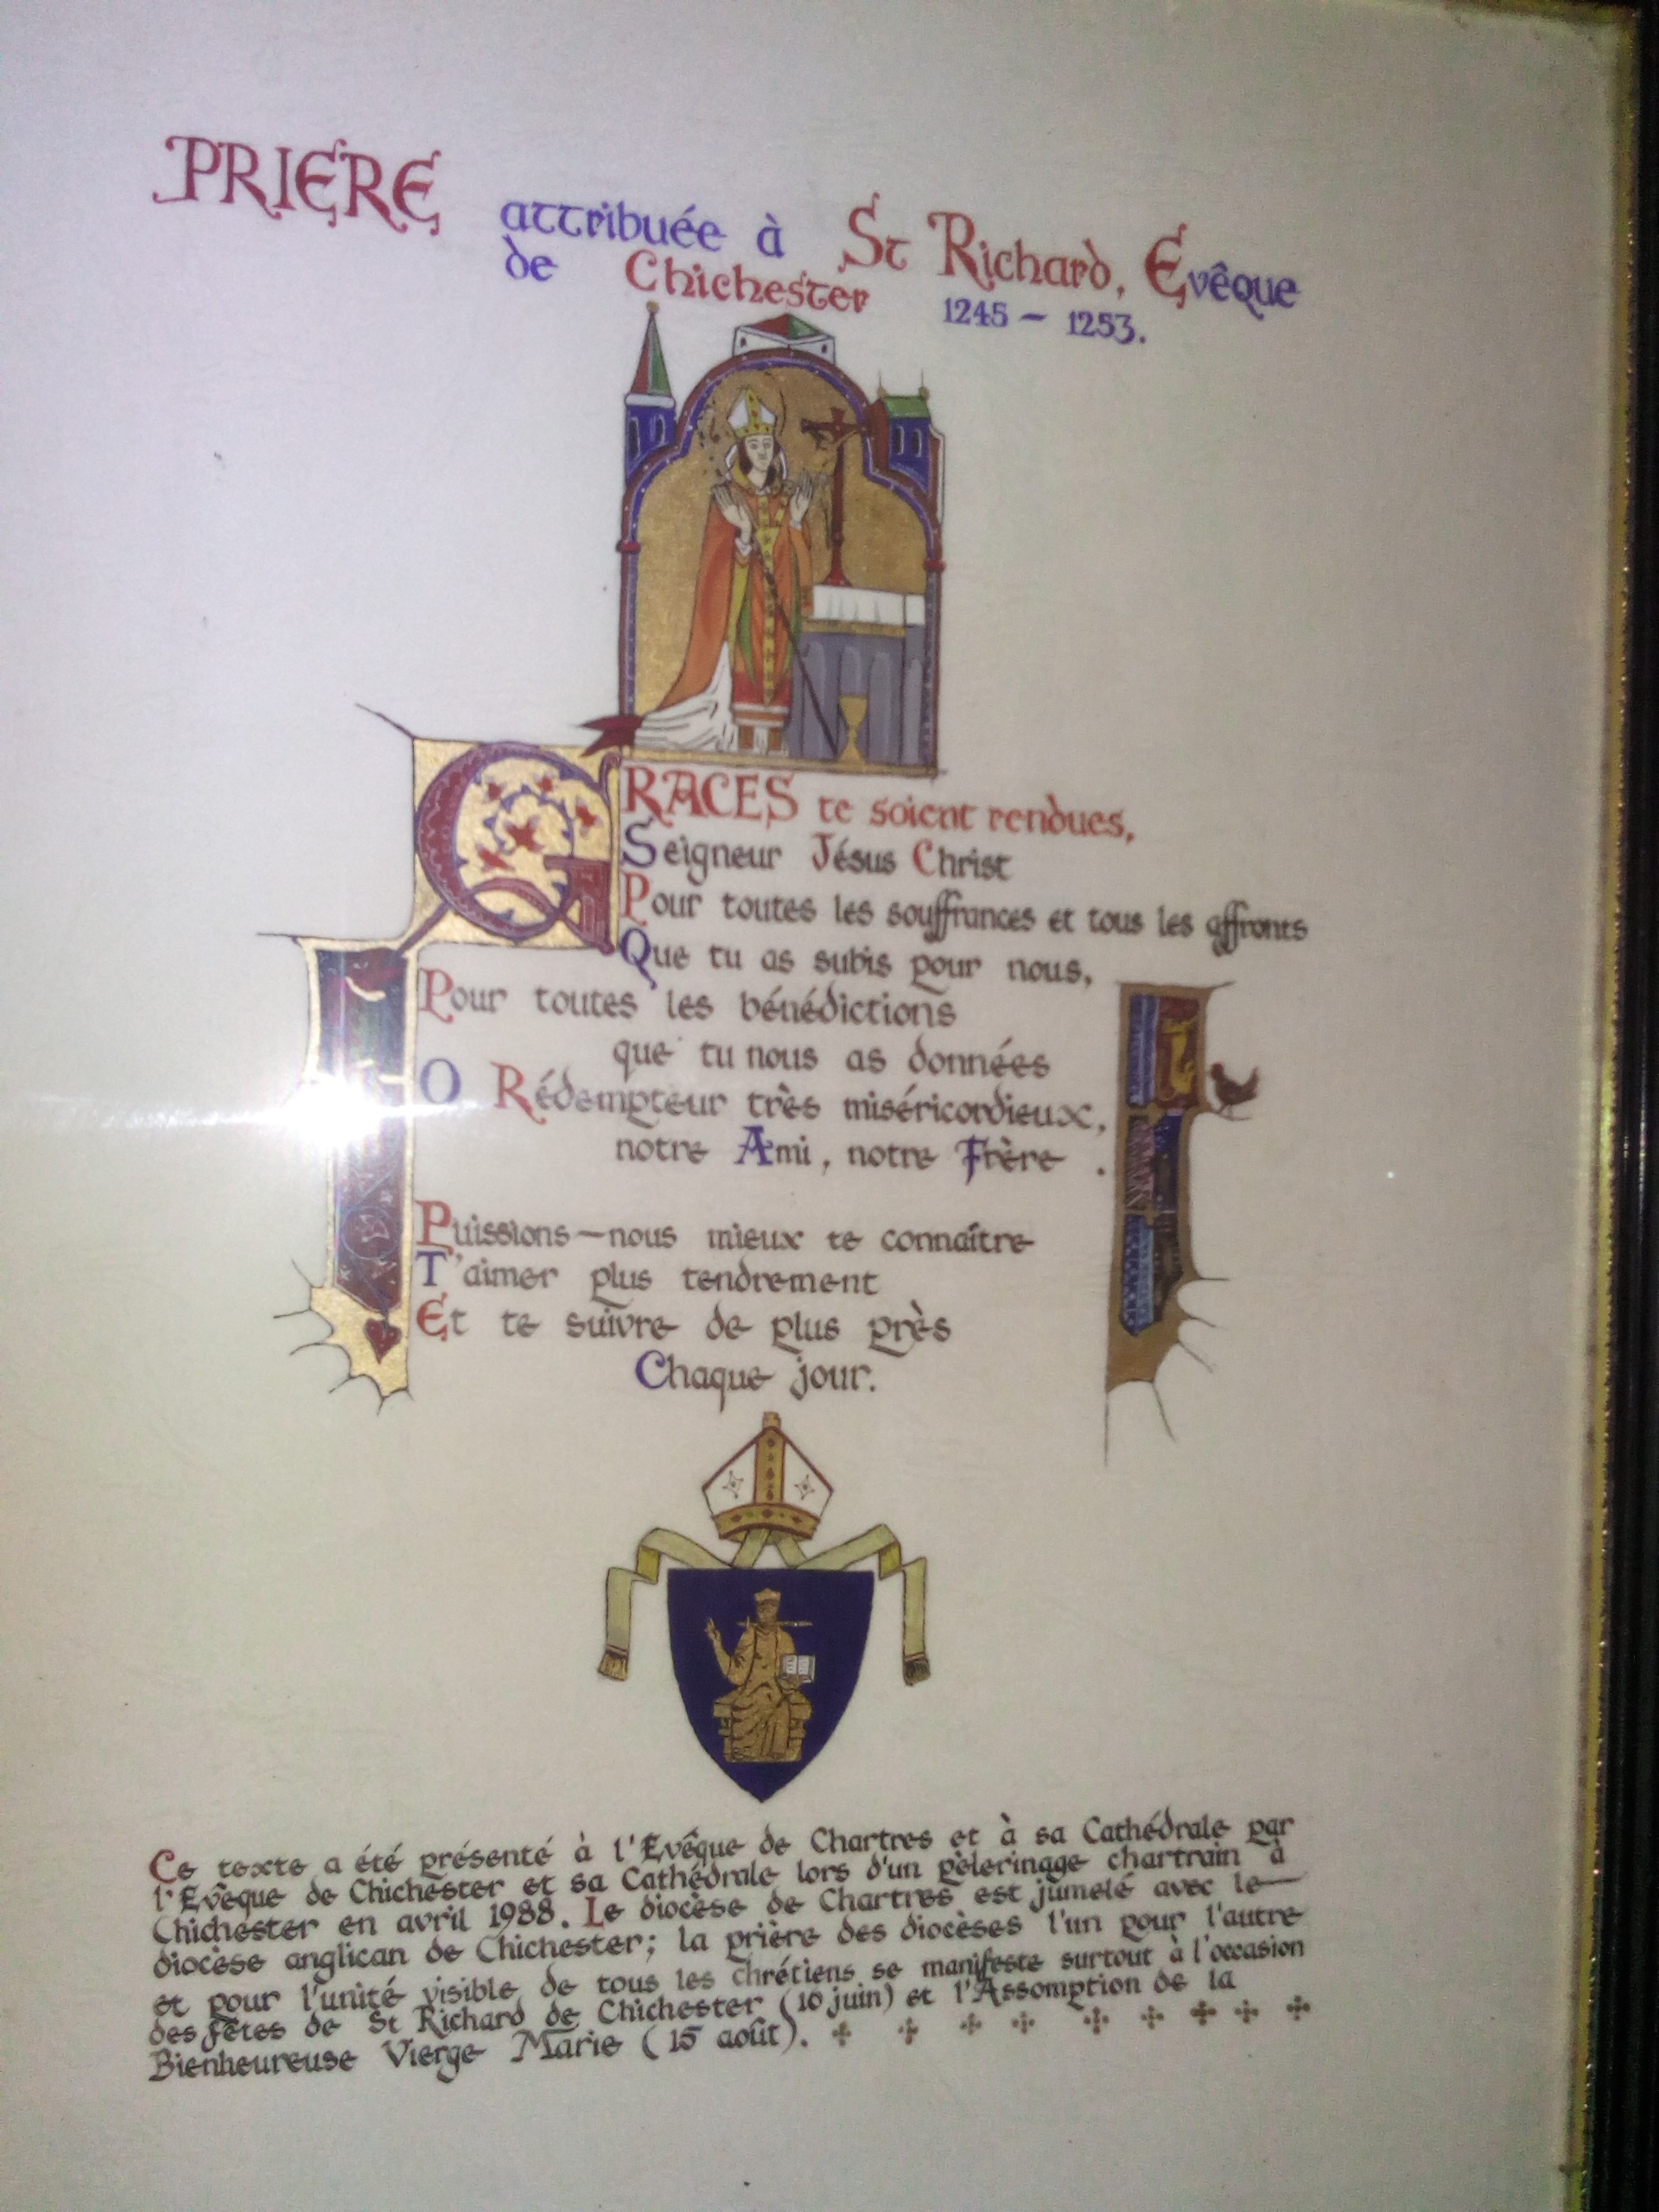 PRIERE attribuée à St Richard, Evêque
de Chichester 1245 – 1253.
GRACES te soient rendues,
Seigneur Jésus Christ
Pour toutes les souffrances et tous les affronts
Que tu as subis pour nous,
Pour toutes les bénédictions
que tu nous as données
O Rédempteur très miséricordieux,
notre Ami, notre Frère .
Puissions-nous mieux te connaître
T'aimer plus tendrement
Et te suivre de plus près
Chaque jour.
Ce texte a été présenté à l'Evêque de Chartres et à sa Cathédrale par
l'Evêque de Chichester et sa Cathédrale lors d'un pèlerinage chartrain à
Chichester en avril 1988. Le diocèse de Chartres est jumelé avec le
diocèse anglican de Chichester; la prière des diocèses l'un pour l'autre
et pour l'unité visible de tous les chrétiens se manifeste surtout à l'occasion
des fêtes de St Richard de Chichester (16 juin) et l'Assomption de la
Bienheureuse Vierge Marie (15 août).